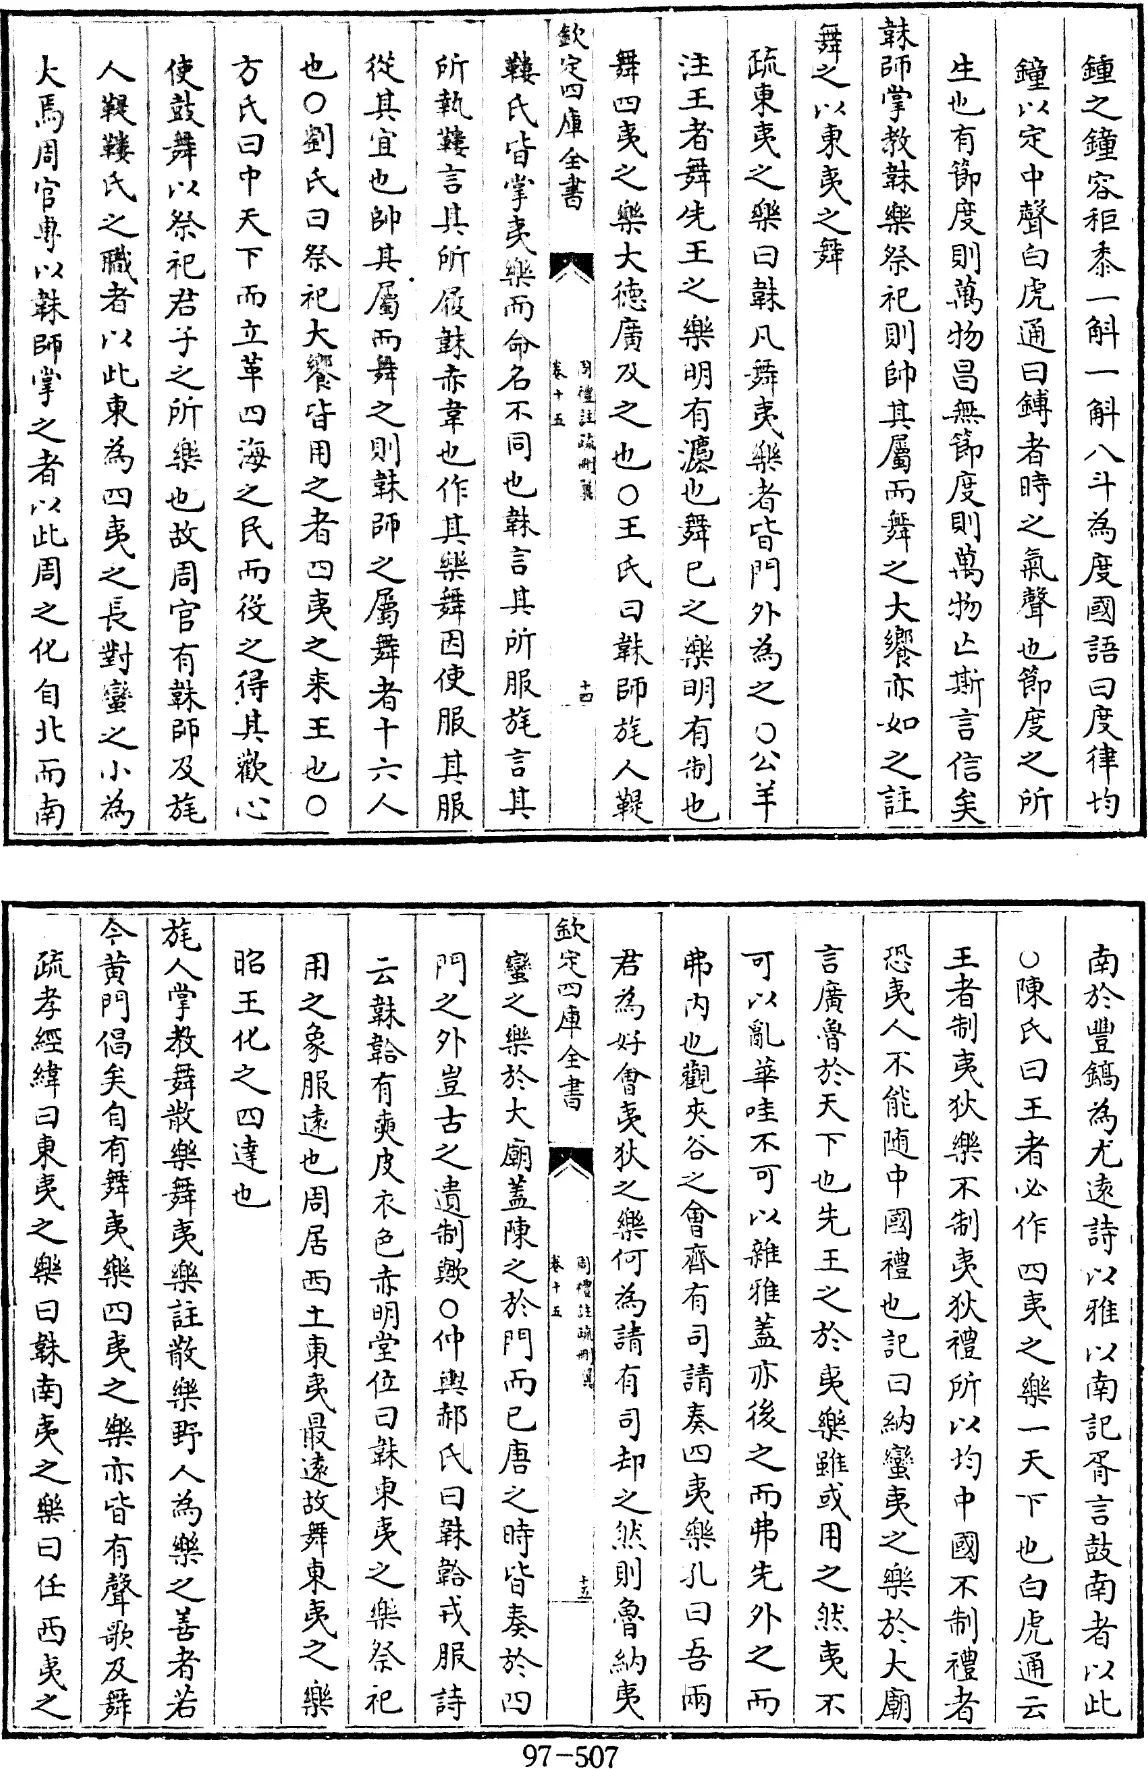 鍾之鐘容秬黍一斛一斛八斗為度國語曰度律均
鐘以定中聲白虎通曰鎛者時之氣聲也節度之所
生也有節度則萬物昌無節度則萬物亡斯言信矣
韎師掌教韎樂祭祀則帥其屬而舞之大饗亦如之註
舞之以東夷之舞
疏東夷之樂曰韎凡舞夷樂者皆門外為之○公羊
注王者舞先王之樂明有灋也舞已之樂明有制也
舞四夷之樂大德廣及之也○王氏曰韎師旄人鞮
欽定四庫全書
周禮註疏刪翼
卷十五
十四
鞻氏皆掌夷樂而命名不同也韎言其所服旄言其
所執鞻言其所履韎赤韋也作其樂舞因使服其服
從其宜也帥其屬而舞之則韎師之屬舞者十六人
也○劉氏曰祭祀大饗皆用之者四夷之来王也○
方氏曰中天下而立革四海之民而役之得其歡心
使鼓舞以祭祀君子之所樂也故周官有韎師及旄
人鞮鞻氏之職者以此東為四夷之長對蠻之小為
大焉周官專以韎師掌之者以此周之化自北而南
南於豐鎬為尤遠詩以雅以南記胥言鼓南者以此
○陳氏曰王者必作四夷之樂一天下也白虎通云
王者制夷狄樂不制夷狄禮所以均中國不制禮者
恐夷人不能随中國禮也記曰納蠻夷之樂於大廟
言廣魯於天下也先王之於夷樂雖或用之然夷不
可以亂華哇不可以雜雅蓋亦後之而弗先外之而
弗内也觀夾谷之會齊有司請奏四夷樂孔曰吾兩
君為好會夷狄之樂何為請有司却之然則魯納夷
欽定四庫全書
周禮註疏刪翼
卷十五
十五
蠻之樂於大廟蓋陳之於門而已唐之時皆奏於四
門之外豈古之遺制歟○仲輿郝氏曰韎韐戎服詩
云韎韐有奭皮衣色赤明堂位曰韎東夷之樂祭祀
用之象服遠也周居西土東夷最遠故舞東夷之樂
昭王化之四達也
旄人掌教舞散樂舞夷樂註散樂野人為樂之善者若
今黄門倡矣自有舞夷樂四夷之樂亦皆有聲歌及舞
疏孝經緯曰東夷之樂曰韎南夷之樂曰任西夷之
97-507